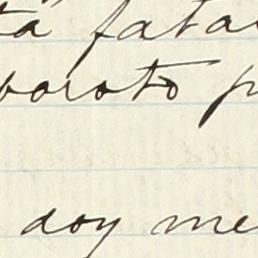 ta fata
borato p
doy me